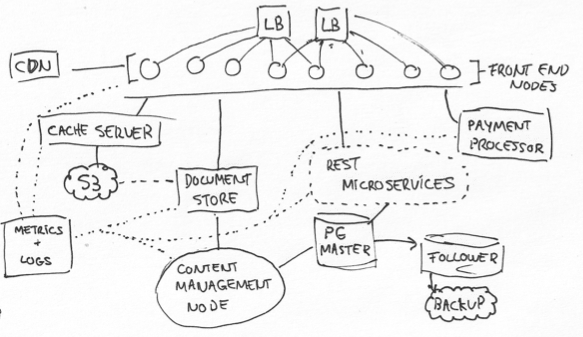 LB
LB
CDN
FRONT END
NODES
CACHE SERVER
PAYMENT
PROCESSOR
S3
DOCUMENT
STORE
REST
MICROSERVICES
METRICS
+
LOGS
PG
MASTER
FOLLOWER
CONTENT
MANAGEMENT
NODE
BACKUP